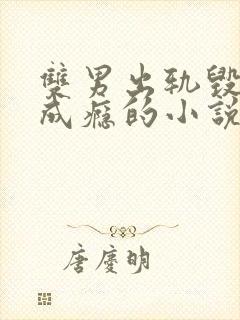 雙男出軌毀
成癮的小說
唐慶明